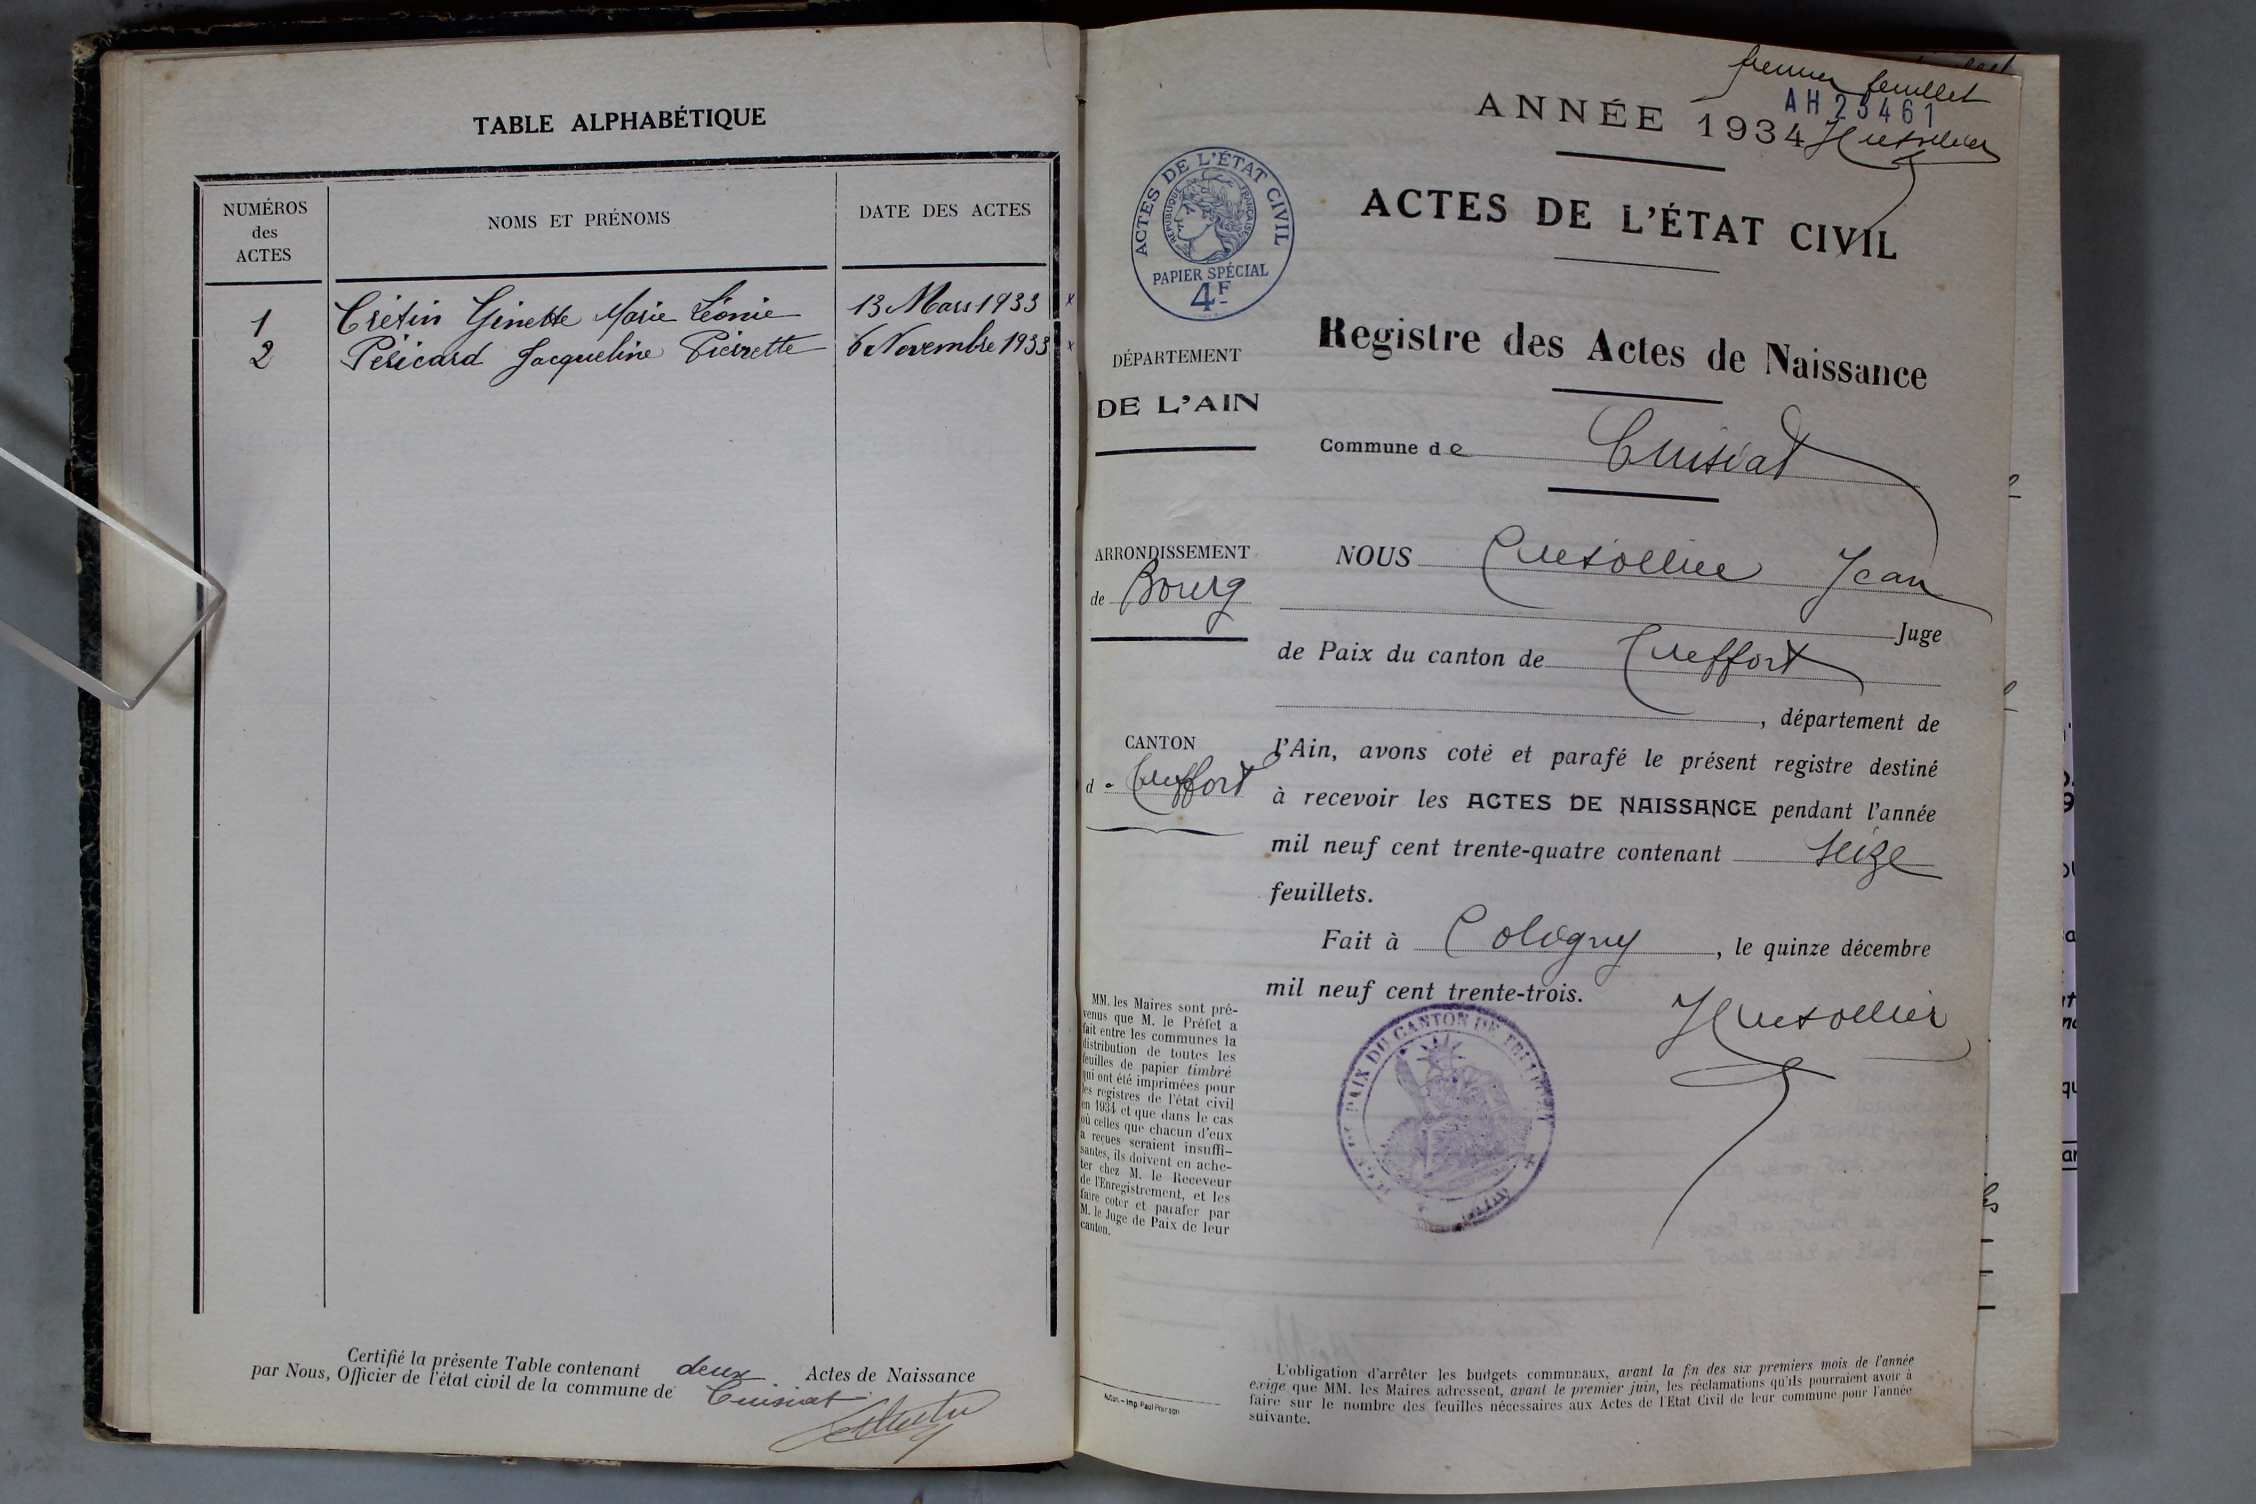 TABLE ALPHABÉTIQUE
NUMÉROS
des
ACTES
NOMS ET PRÉNOMS
DATE DES ACTES
1 Crétin Ginette Marie Léonie 13 Mars 1933 x
2 Péricard Jacqueline Pierrette 6 Novembre 1933 x
Certifié la présente Table contenant deux Actes de Naissance
par Nous, Officier de l'état civil de la commune de Cuisiat
premier feuillet
AH 23461
ANNÉE 1934
ACTES DE L'ÉTAT CIVIL
RÉPUBLIQUE FRANÇAISE
PAPIER SPÉCIAL
4F
ACTES DE L'ÉTAT CIVIL
Registre des Actes de Naissance
DÉPARTEMENT
DE L'AIN
Commune de Cuisiat
ARRONDISSEMENT
de Bourg
CANTON
de Treffort
NOUS Jean
Juge
de Paix du canton de Treffort
, département de
l'Ain, avons coté et parafé le présent registre destiné
à recevoir les ACTES DE NAISSANCE pendant l'année
mil neuf cent trente-quatre contenant seize
feuillets.
Fait à Coligny, le quinze décembre
mil neuf cent trente-trois.
PAIX DU CANTON DE
MM. les Maires sont pré-
venus que M. le Préfet a
fait entre les communes la
distribution de toutes les
feuilles de papier timbré
qui ont été imprimées pour
les registres de l'état civil
en 1934 et que dans le cas
où celles que chacun d'eux
a reçues seraient insuffi-
santes, ils doivent en ache-
ter chez M. le Receveur
de l'Enregistrement, et les
faire coter et parafer par
M. le Juge de Paix de leur
canton.
L'obligation d'arrêter les budgets communaux, avant la fin des six premiers mois de l'année
exige que MM. les Maires adressent, avant le premier juin, les réclamations qu'ils pourraient avoir à
faire sur le nombre des feuilles nécessaires aux Actes de l'Etat Civil de leur commune pour l'année
suivante.